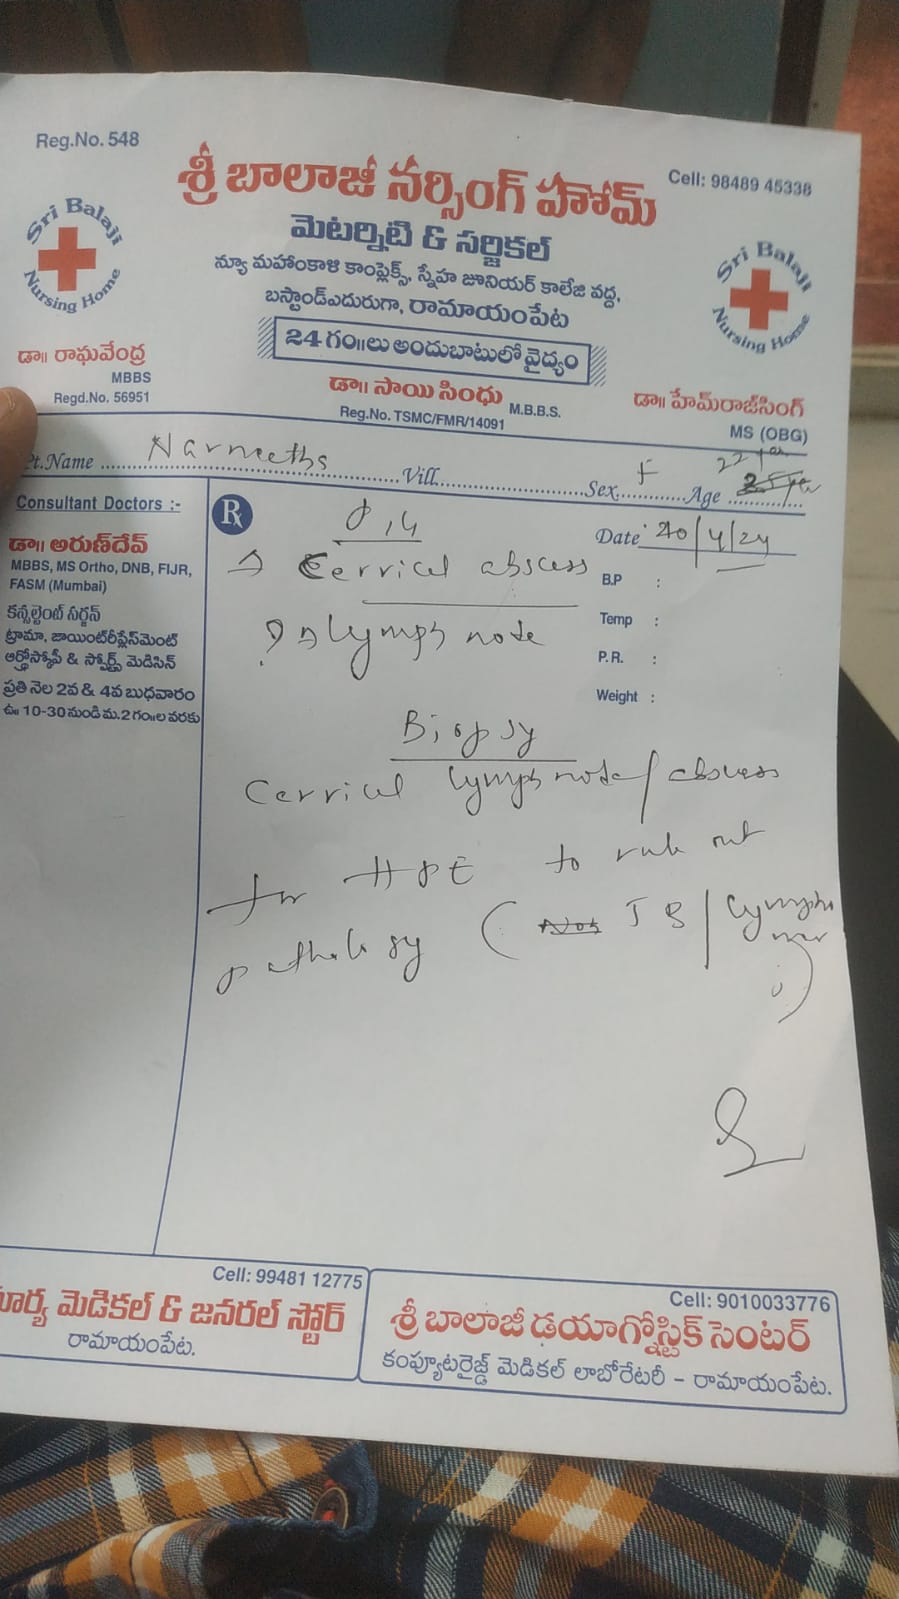 Reg.No. 548
Cell: 98489 45338
శ్రీ బాలాజీ నర్సింగ్ హోమ్
Sri Balaji Nursing Home
Sri Balaji Nursing Home
మెటర్నిటి & సర్జికల్
న్యూ మహాంకాళి కాంప్లెక్స్, స్నేహ జూనియర్ కాలేజి వద్ద,
బస్టాండ్ఎదురుగా, రామాయంపేట
24 గం॥లు అందుబాటులో వైద్యం
డా॥ రాఘవేంద్ర
MBBS
Regd.No. 56951
డా॥ సాయి సింధు M.B.B.S.
Reg.No. TSMC/FMR/14091
డా॥ హేమ్‌రాజ్‌సింగ్
MS (OBG)
Pt.Name Navneeths Vill. Sex. F Age 22
Consultant Doctors :-
డా॥ అరుణ్‌దేవ్
MBBS, MS Ortho, DNB, FIJR,
FASM (Mumbai)
కన్సల్టెంట్ సర్జన్
ట్రామా, జాయింట్‌రీప్లేస్‌మెంట్
ఆర్థ్రోస్కోపీ & స్పోర్ట్స్ మెడిసిన్
ప్రతి నెల 2వ & 4వ బుధవారం
ఉ॥ 10-30 నుండి మ.2 గం॥ల వరకు
Rx
Date: 20/4/24
Cervical abscess
B.P :
Temp :
? Lymph note
P.R. :
Weight :
Biopsy
Cervical lymph note/abscess
for HPE to rule out
pathology ( TB/Lympho
)
Cell: 99481 12775
మెడికల్ & జనరల్ స్టోర్
రామాయంపేట.
Cell: 9010033776
శ్రీ బాలాజీ డయాగ్నోస్టిక్ సెంటర్
కంప్యూటరైజ్డ్ మెడికల్ లాబోరేటరీ – రామాయంపేట.